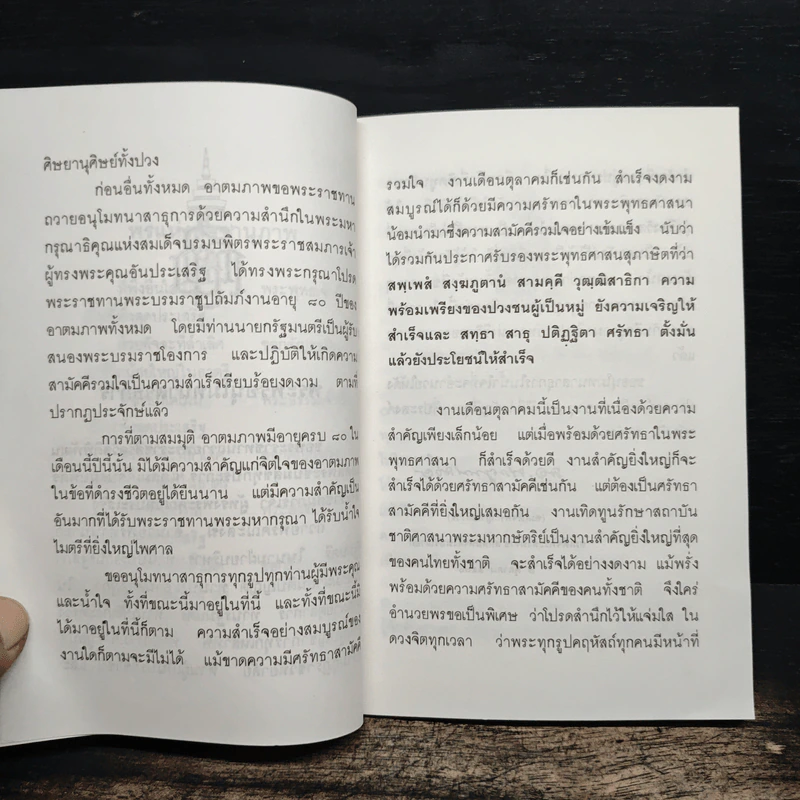 ศิษยานุศิษย์ทั้งปวง
ก่อนอื่นทั้งหมด อาตมภาพขอพระราชทาน
ถวายอนุโมทนาสาธุการด้วยความสำนึกในพระมหา
กรุณาธิคุณแห่งสมเด็จบรมบพิตรพระราชสมภารเจ้า
ผู้ทรงพระคุณอันประเสริฐ ได้ทรงพระกรุณาโปรด
พระราชทานพระบรมราชูปถัมภ์งานอายุ ๘๐ ปีของ
อาตมภาพทั้งหมด โดยมีท่านนายกรัฐมนตรีเป็นผู้รับ
สนองพระบรมราชโองการ และปฏิบัติให้เกิดความ
สามัคคีรวมใจเป็นความสำเร็จเรียบร้อยงดงาม ตามที่
ปรากฏประจักษ์แล้ว
การที่ตามสมมุติ อาตมภาพมีอายุครบ ๘๐ ใน
เดือนนี้ปีนี้นั้น มิได้มีความสำคัญแก่จิตใจของอาตมภาพ
ในข้อที่ดำรงชีวิตอยู่ได้ยืนนาน แต่มีความสำคัญเป็น
อันมากที่ได้รับพระราชทานพระมหากรุณา ได้รับน้ำใจ
ไมตรีที่ยิ่งใหญ่ไพศาล
ขออนุโมทนาสาธุการทุกรูปทุกท่านผู้มีพระคุณ
และน้ำใจ ทั้งที่ขณะนี้มาอยู่ในที่นี้ และทั้งที่ขณะนี้มิ
ได้มาอยู่ในที่นี้ก็ตาม ความสำเร็จอย่างสมบูรณ์ของ
งานใดก็ตามจะมีไม่ได้ แม้ขาดความมีศรัทธาสามัคคี
รวมใจ งานเดือนตุลาคมก็เช่นกัน สำเร็จงดงาม
สมบูรณ์ได้ก็ด้วยมีความศรัทธาในพระพุทธศาสนา
น้อมนำมาซึ่งความสามัคคีรวมใจอย่างเข้มแข็ง นับว่า
ได้รวมกันประกาศรับรองพระพุทธศาสนสุภาษิตที่ว่า
สพฺเพสํ สงฺฆภูตานํ สามคฺคี วุฑฺฒิสาธิกา ความ
พร้อมเพรียงของปวงชนผู้เป็นหมู่ ยังความเจริญให้
สำเร็จและ สทฺธา สาธุ ปติฏฺฐิตา ศรัทธา ตั้งมั่น
แล้วยังประโยชน์ให้สำเร็จ
งานเดือนตุลาคมนี้เป็นงานที่เนื่องด้วยความ
สำคัญเพียงเล็กน้อย แต่เมื่อพร้อมด้วยศรัทธาในพระ
พุทธศาสนา ก็สำเร็จด้วยดี งานสำคัญยิ่งใหญ่ก็จะ
สำเร็จได้ด้วยศรัทธาสามัคคีเช่นกัน แต่ต้องเป็นศรัทธา
สามัคคีที่ยิ่งใหญ่เสมอกัน งานเทิดทูนรักษาสถาบัน
ชาติศาสนาพระมหากษัตริย์เป็นงานสำคัญยิ่งใหญ่ที่สุด
ของคนไทยทั้งชาติ จะสำเร็จได้อย่างงดงาม แม้พรั่ง
พร้อมด้วยความศรัทธาสามัคคีของคนทั้งชาติ จึงใคร่
อำนวยพรขอเป็นพิเศษ ว่าโปรดสำนึกไว้ให้แจ่มใส ใน
ดวงจิตทุกเวลา ว่าพระทุกรูปคฤหัสถ์ทุกคนมีหน้าที่